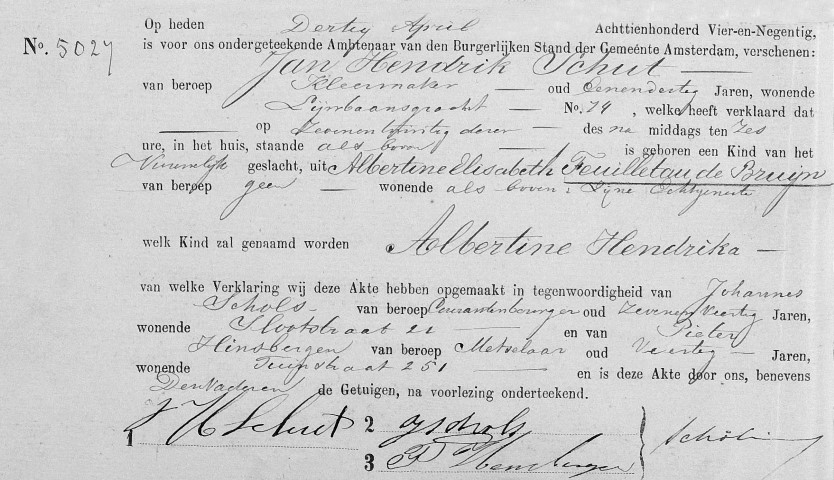 Op heden Dertig April Achttienhonderd Vier-en-Negentig,
No. 5027 is voor ons ondergeteekende Ambtenaar van den Burgerlijken Stand der Gemeénte Amsterdam, verschenen:
Jan Hendrik Schut
van beroep Kleermaker oud Eenendertig Jaren, wonende
Lijnbaansgracht No. 74, welke heeft verklaard dat
op Zevenentwintig dezer des na middags ten Zes
ure, in het huis, staande als boven is geboren een Kind van het
Vrouwelijk geslacht, uit Albertine Elisabeth Feuilletau de Bruijn
van beroep geen wonende als boven, Zijne Echtgenoote
welk Kind zal genaamd worden Albertine Hendrika
van welke Verklaring wij deze Akte hebben opgemaakt in tegenwoordigheid van Johannes
Schols van beroep Courantenbezorger oud Zevenenveertig Jaren,
wonende Slootstraat 21 en van Pieter
Hinsbergen van beroep Metselaar oud Veertig Jaren,
wonende Tuinstraat 251 en is deze Akte door ons, benevens
Den Vader en de Getuigen, na voorlezing onderteekend.
1 J H Schut 2 J Schols
3 P Hinsbergen